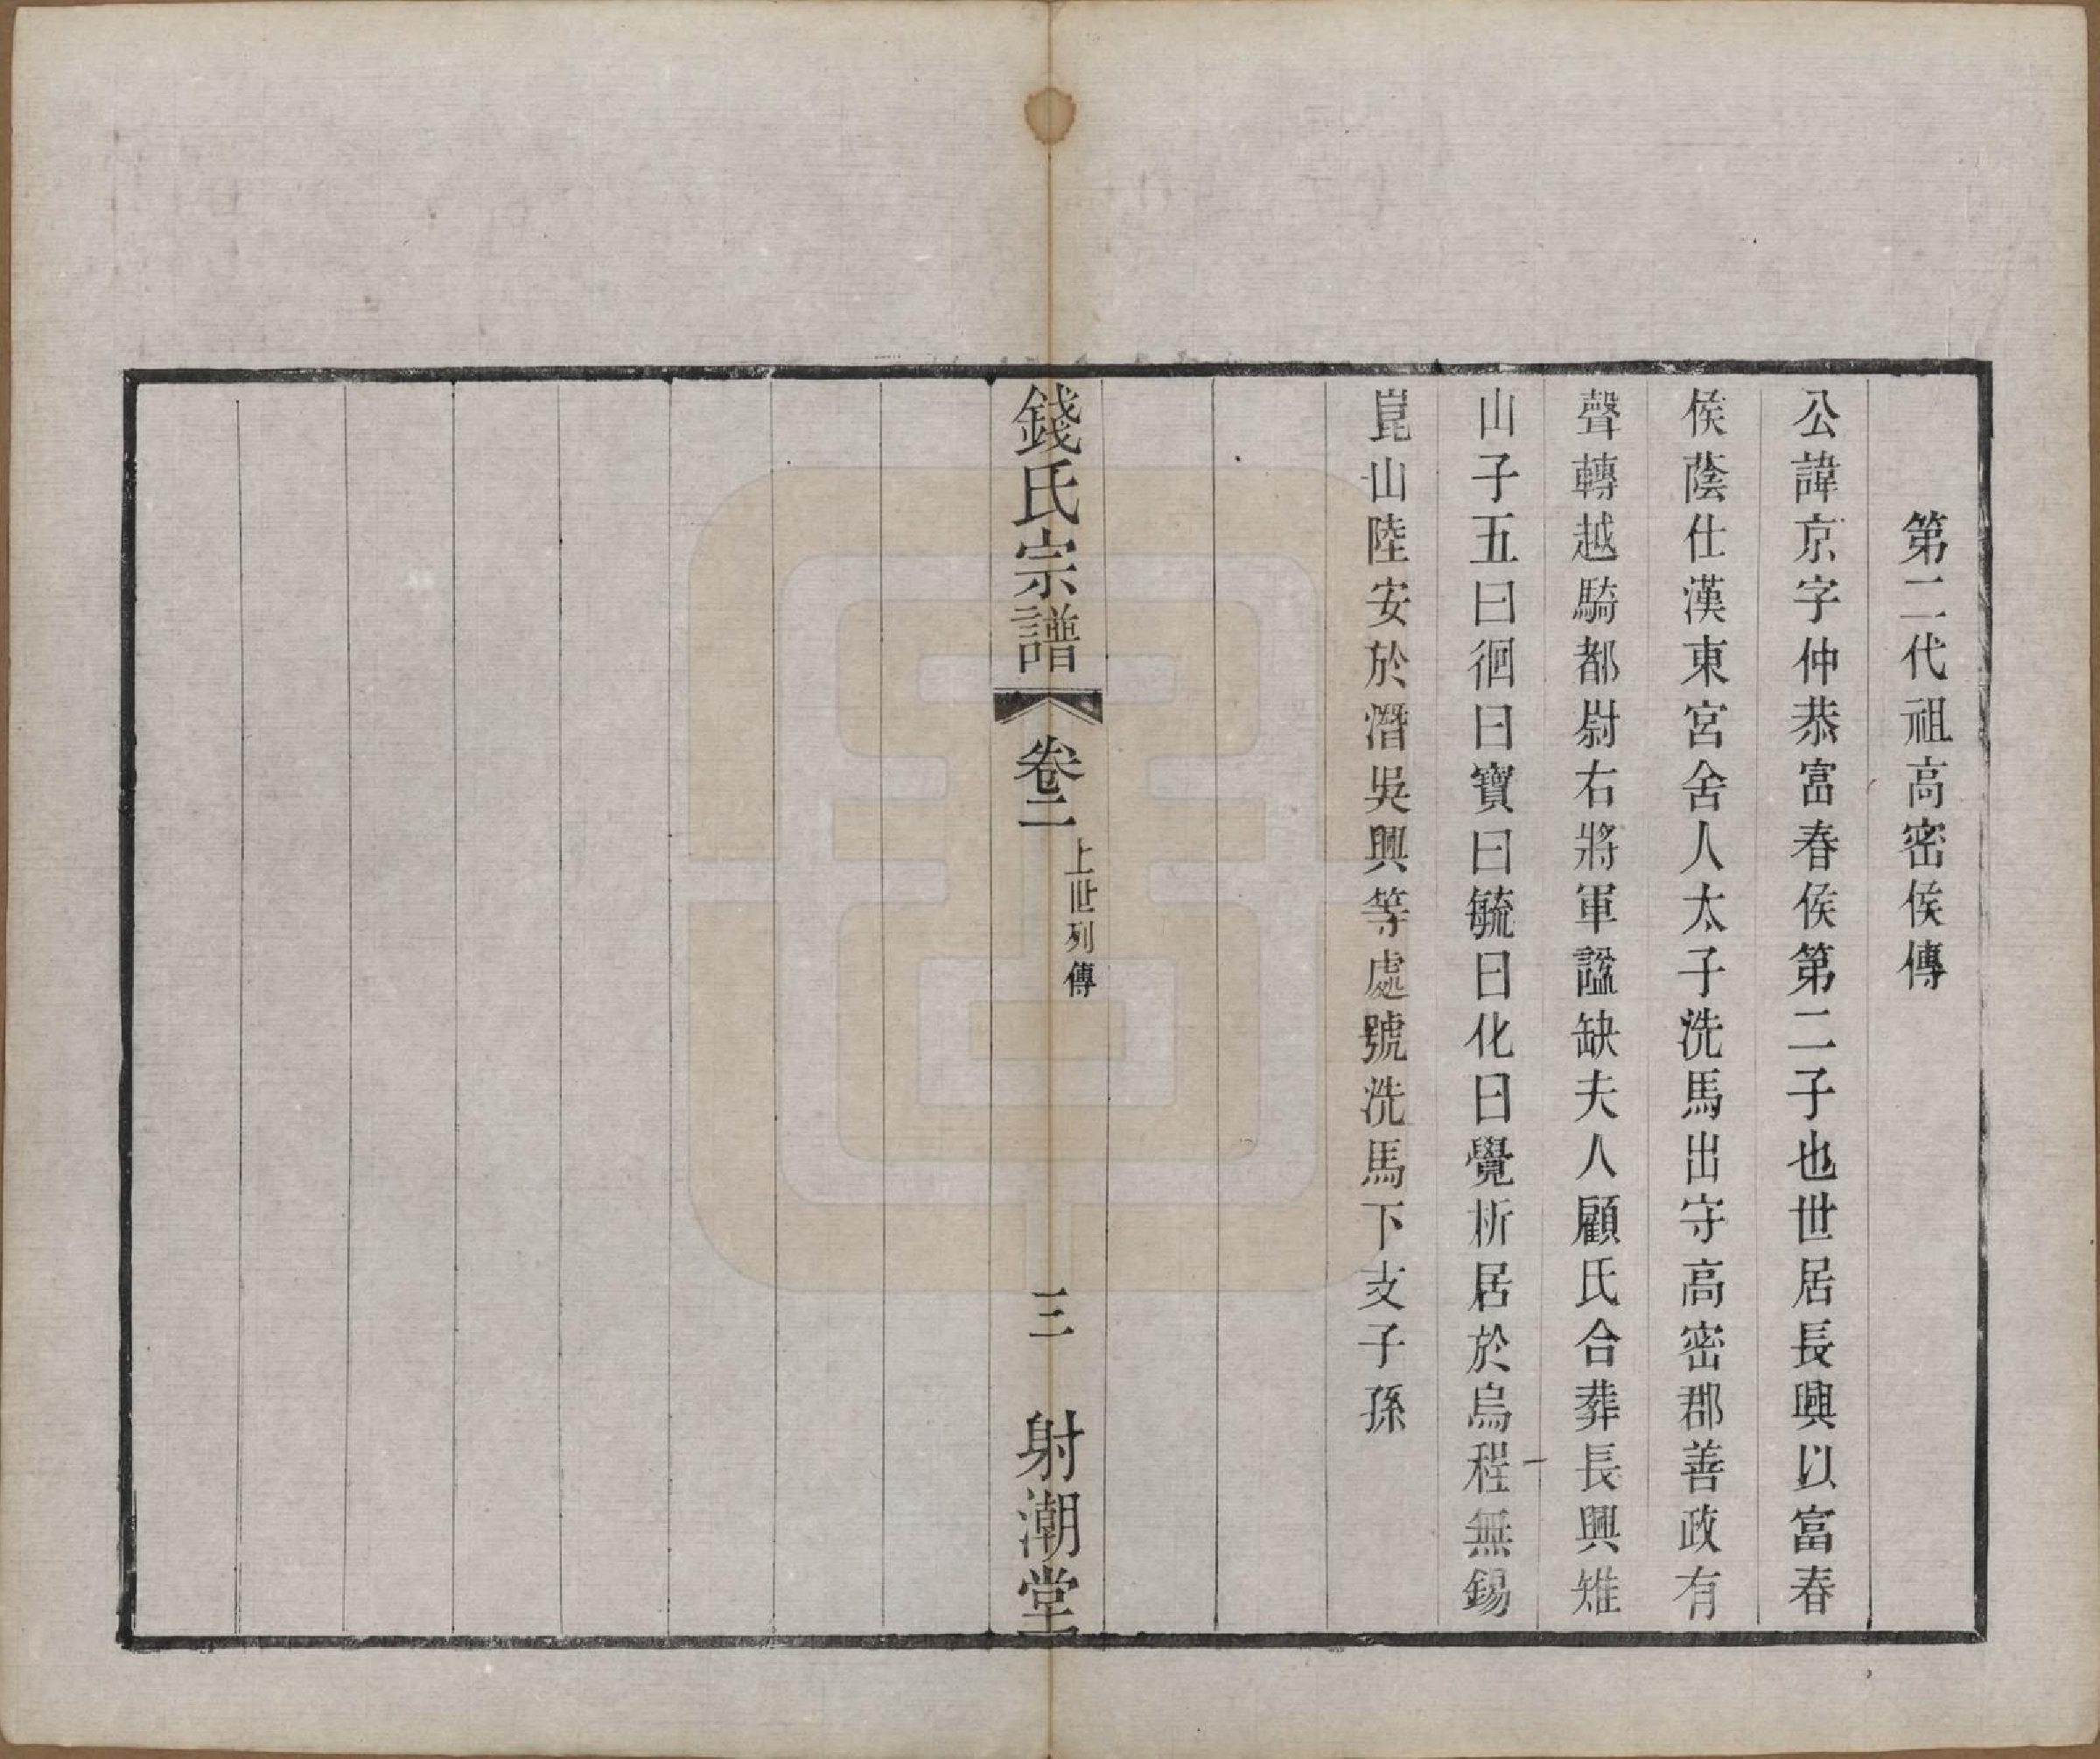 第二代祖高密侯傳
公諱京字仲恭富春侯第二子也世居長興以富春
侯蔭仕漢東宮舍人太子洗馬出守高密郡善政有
聲轉越騎都尉右將軍諡缺夫人顧氏合葬長興雉
山子五曰徊曰寶曰毓曰化曰覺析居於烏程無錫
崑山陸安於潛吳興等處號洗馬下支子孫
錢氏宗譜
卷二
上世列傳
三
射潮堂